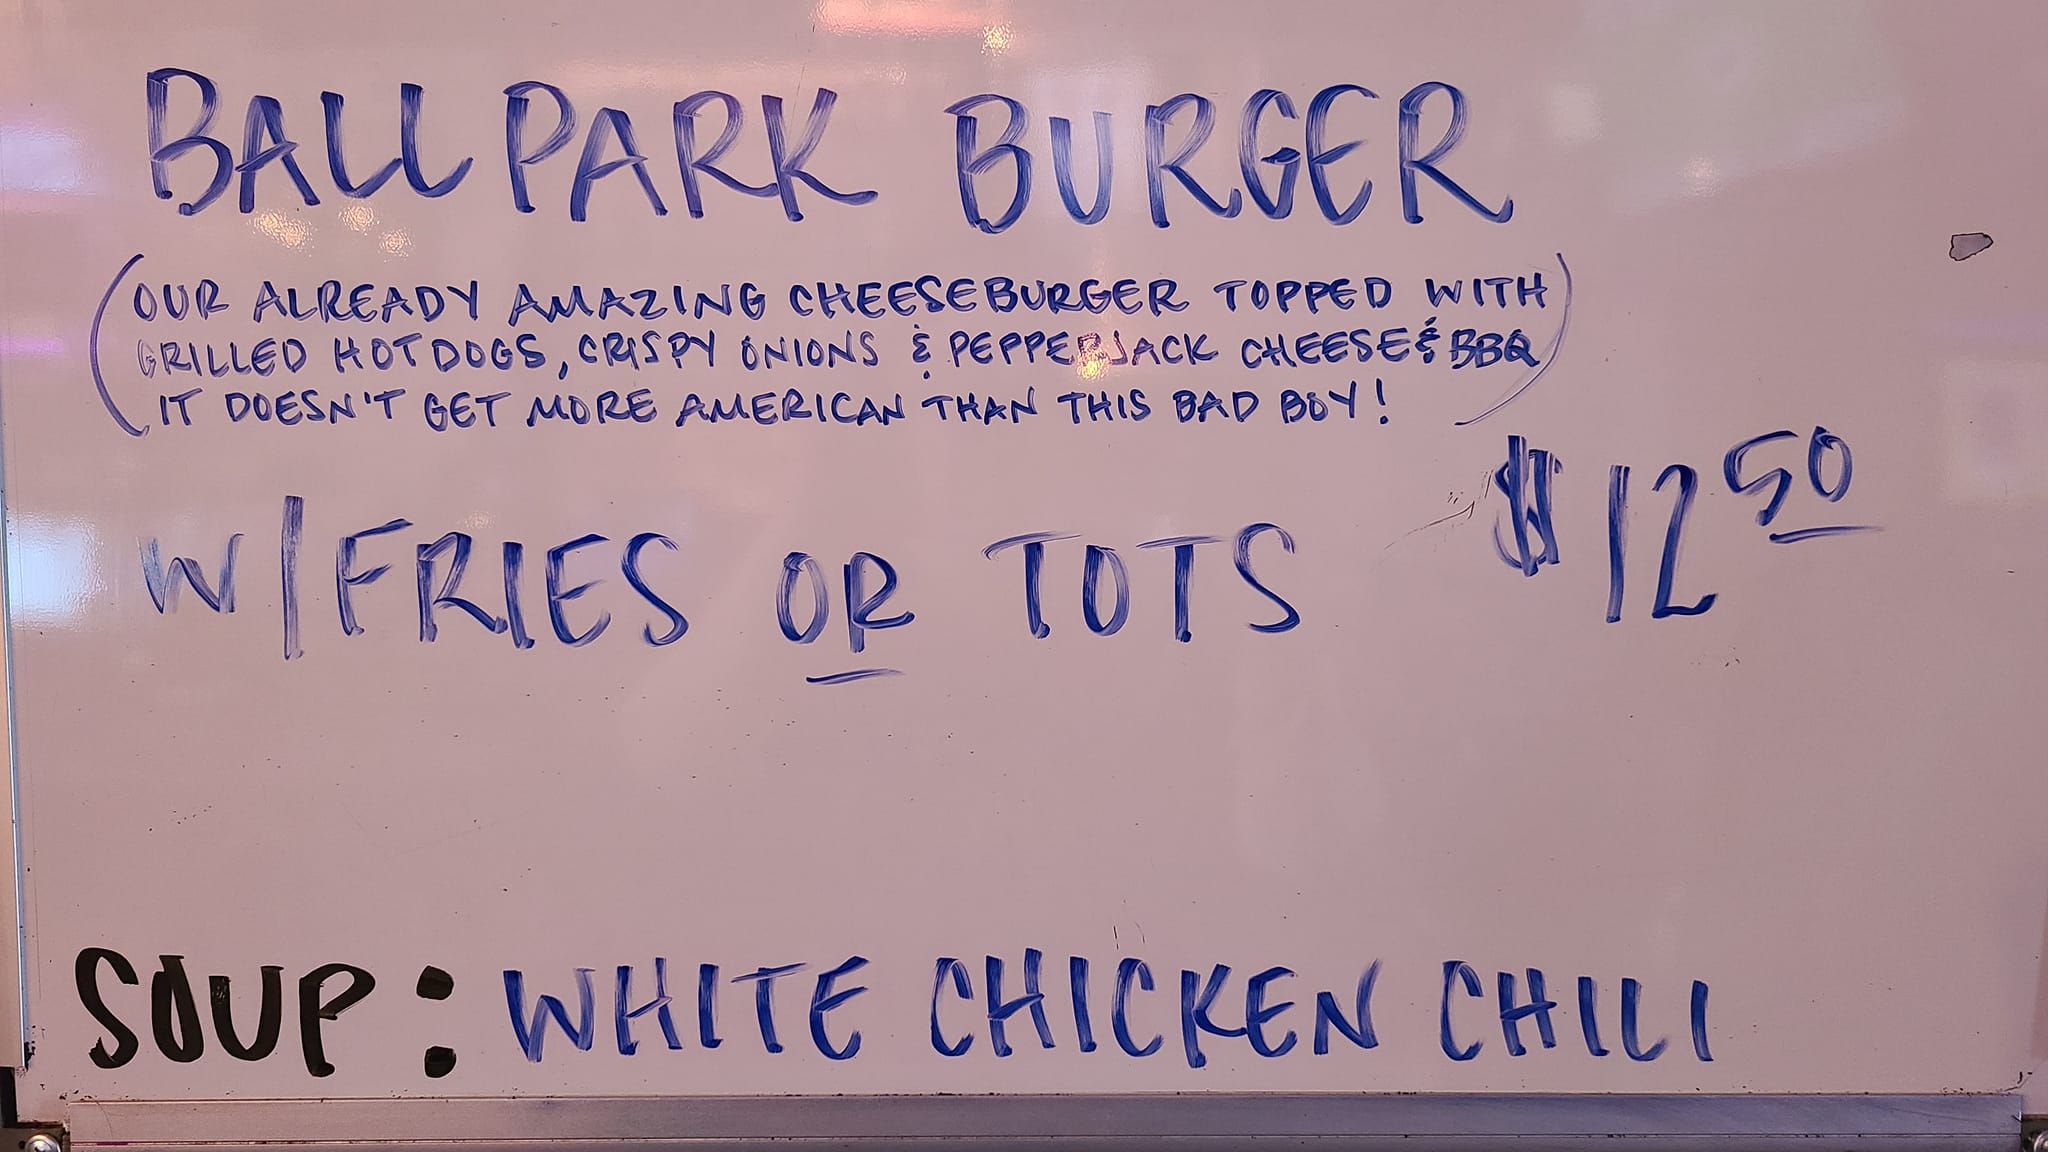 BALLPARK BURGER
(OUR ALREADY AMAZING CHEESEBURGER TOPPED WITH
GRILLED HOTDOGS, CRISPY ONIONS & PEPPERJACK CHEESE & BBQ
IT DOESN'T GET MORE AMERICAN THAN THIS BAD BOY!)
W/FRIES OR TOTS $12 50
SOUP: WHITE CHICKEN CHILI